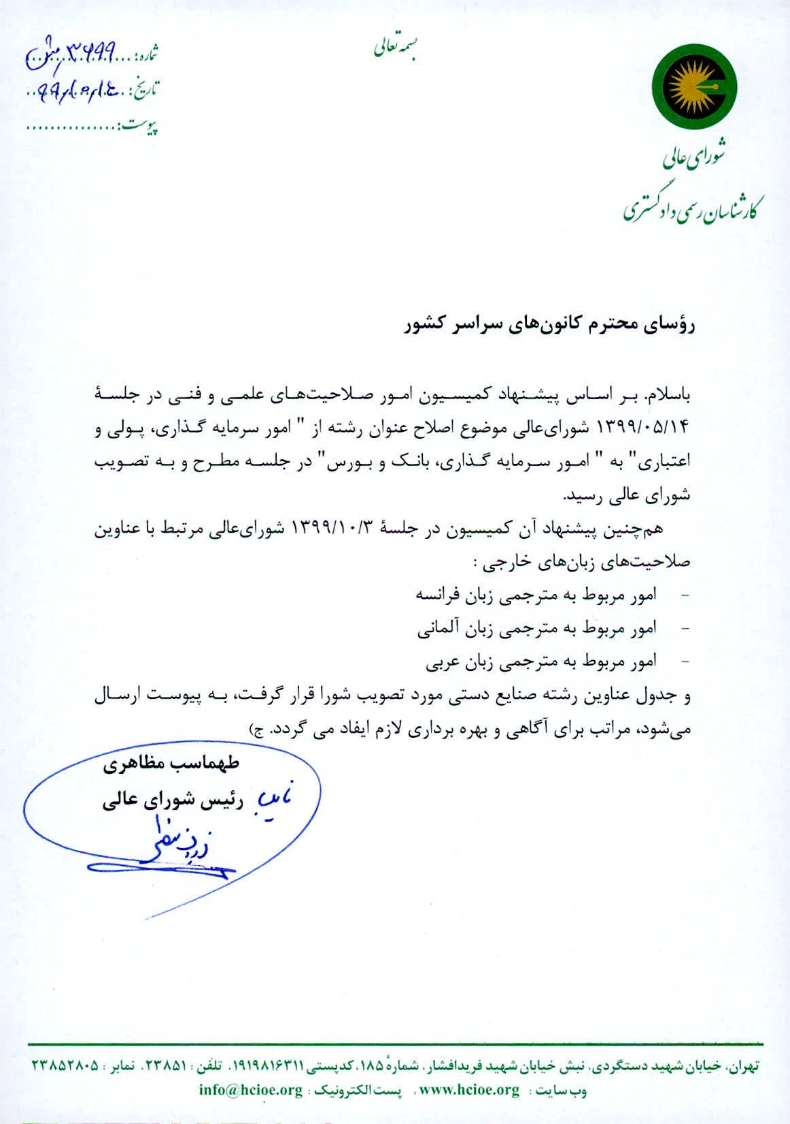 بسمه تعالی
شماره: ۳۶۹۹
تاریخ:
پیوست:
شورای عالی
کارشناسان رسمی دادگستری
رؤسای محترم کانون‌های سراسر کشور
باسلام. بر اساس پیشنهاد کمیسیون امور صلاحیت‌های علمی و فنی در جلسۀ
۱۳۹۹/۰۵/۱۴ شورای‌عالی موضوع اصلاح عنوان رشته از " امور سرمایه گذاری، پولی و
اعتباری" به " امور سرمایه گذاری، بانک و بورس" در جلسه مطرح و به تصویب
شورای عالی رسید.
هم‌چنین پیشنهاد آن کمیسیون در جلسۀ ۱۳۹۹/۱۰/۳ شورای‌عالی مرتبط با عناوین
صلاحیت‌های زبان‌های خارجی :
- امور مربوط به مترجمی زبان فرانسه
- امور مربوط به مترجمی زبان آلمانی
- امور مربوط به مترجمی زبان عربی
و جدول عناوین رشته صنایع دستی مورد تصویب شورا قرار گرفت، به پیوست ارسال
می‌شود، مراتب برای آگاهی و بهره برداری لازم ایفاد می گردد. ج)
طهماسب مظاهری
نایب رئیس شورای عالی
تهران، خیابان شهید دستگردی، نبش خیابان شهید فریدافشار، شمارۀ ۱۸۵. کدپستی ۱۹۱۹۸۱۶۳۱۱. تلفن : ۲۳۸۵۱. نمابر : ۲۳۸۵۲۸۰۵
وب سایت : www.hcioe.org . پست الکترونیک : info@hcioe.org